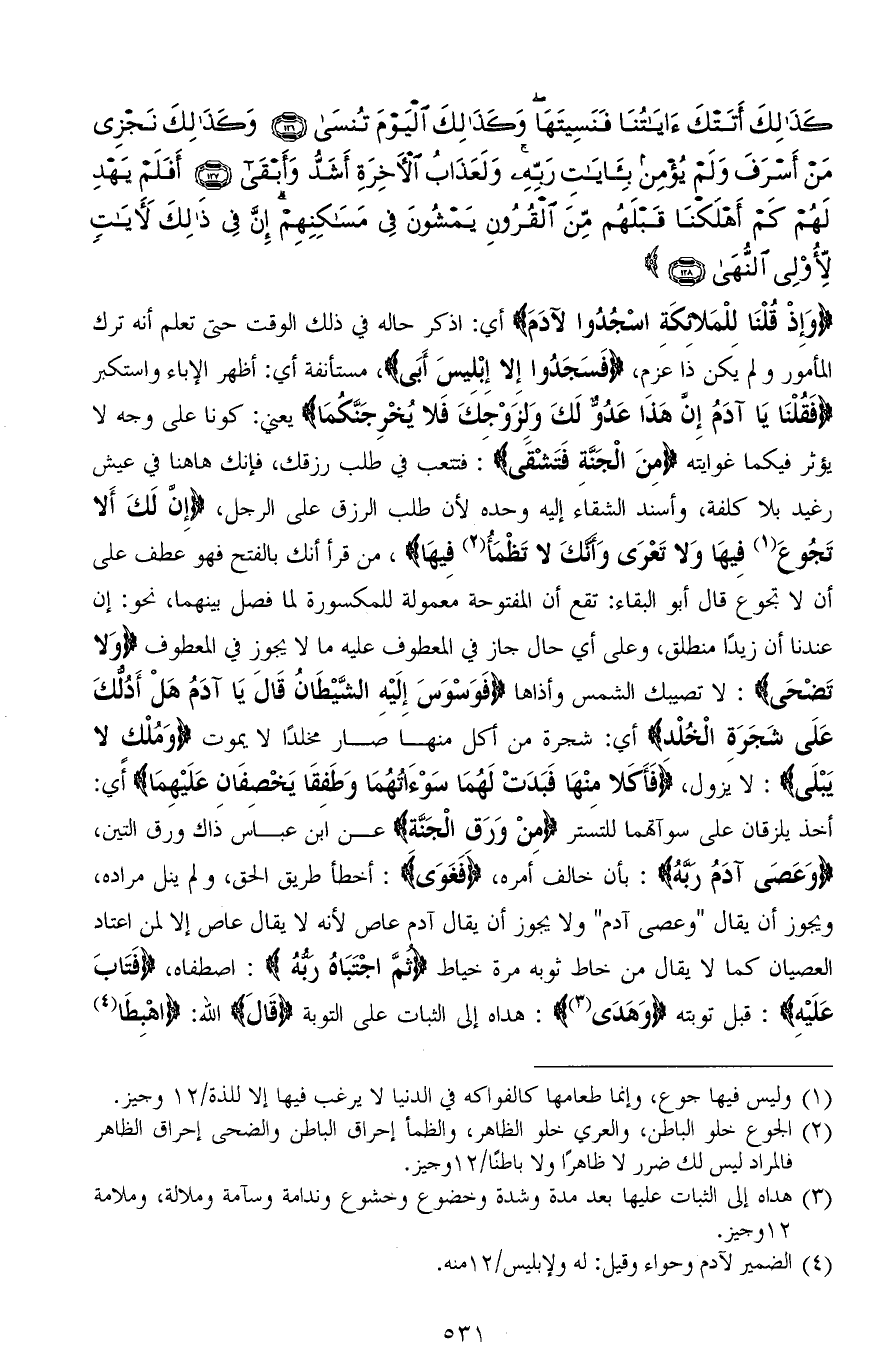 كَذَٰلِكَ أَتَتْكَ ءَايَٰتُنَا فَنَسِيتَهَا ۖ وَكَذَٰلِكَ ٱلْيَوْمَ تُنسَىٰ ﴿١٢٦﴾ وَكَذَٰلِكَ نَجْزِى
مَنْ أَسْرَفَ وَلَمْ يُؤْمِنۢ بِـَٔايَٰتِ رَبِّهِۦ ۚ وَلَعَذَابُ ٱلْأَخِرَةِ أَشَدُّ وَأَبْقَىٰٓ ﴿١٢٧﴾ أَفَلَمْ يَهْدِ
لَهُمْ كَمْ أَهْلَكْنَا قَبْلَهُم مِّنَ ٱلْقُرُونِ يَمْشُونَ فِى مَسَٰكِنِهِمْ ۗ إِنَّ فِى ذَٰلِكَ لَأَيَٰتٍ
لِّأُوْلِى ٱلنُّهَىٰ ﴿١٢٨﴾ ﴾
﴿وَإِذْ قُلْنَا لِلْمَلائِكَةِ اسْجُدُوا لآدَمَ﴾ أي: اذكر حاله في ذلك الوقت حتى تعلم أنه ترك
المأمور و لم يكن ذا عزم، ﴿فَسَجَدُوا إِلا إِبْلِيسَ أَبَى﴾، مستأنفة أي: أظهر الإباء واستكبر
﴿فَقُلْنَا يَا آدَمُ إِنَّ هَذَا عَدُوٌّ لَكَ وَلِزَوْجِكَ فَلا يُخْرِجَنَّكُمَا﴾ يعني: كونا على وجه لا
يؤثر فيكما غوايته ﴿مِنَ الْجَنَّةِ فَتَشْقَى﴾ : فتتعب في طلب رزقك، فإنك هاهنا في عيش
رغيد بلا كلفة، وأسند الشقاء إليه وحده لأن طلب الرزق على الرجل، ﴿إِنَّ لَكَ أَلا
تَجُوعَ(١) فِيهَا وَلا تَعْرَى وَأَنَّكَ لا تَظْمَأُ(٢) فِيهَا﴾ ، من قرأ أنك بالفتح فهو عطف على
أن لا تجوع قال أبو البقاء: تقع أن المفتوحة معمولة للمكسورة لما فصل بينهما، نحو: إن
عندنا أن زيدًا منطلق، وعلى أي حال جاز في المعطوف عليه ما لا يجوز في المعطوف ﴿وَلا
تَضْحَى﴾ : لا تصيبك الشمس وأذاها ﴿فَوَسْوَسَ إِلَيْهِ الشَّيْطَانُ قَالَ يَا آدَمُ هَلْ أَدُلُّكَ
عَلَى شَجَرَةِ الْخُلْدِ﴾ أي: شجرة من أكل منهـــا صـــار مخلدًا لا يموت ﴿وَمُلْكٍ لا
يَبْلَى﴾ : لا يزول، ﴿فَأَكَلا مِنْهَا فَبَدَتْ لَهُمَا سَوْءَاتُهُمَا وَطَفِقَا يَخْصِفَانِ عَلَيْهِمَا﴾ أي:
أخذ يلزقان على سوآتهما للتستر ﴿مِنْ وَرَقِ الْجَنَّةِ﴾ عـــن ابن عبـــاس ذاك ورق التين،
﴿وَعَصَى آدَمُ رَبَّهُ﴾ : بأن خالف أمره، ﴿فَغَوَى﴾ : أخطأ طريق الحق، و لم ينل مراده،
ويجوز أن يقال "وعصى آدم" ولا يجوز أن يقال آدم عاص لأنه لا يقال عاص إلا لمن اعتاد
العصيان كما لا يقال من خاط ثوبه مرة خياط ﴿ثُمَّ اجْتَبَاهُ رَبُّهُ ﴾ : اصطفاه، ﴿فَتَابَ
عَلَيْهِ﴾ : قبل توبته ﴿وَهَدَى(٣)﴾ : هداه إلى الثبات على التوبة ﴿قَالَ﴾ الله: ﴿اهْبِطَا(٤)
(١) وليس فيها جوع، وإنما طعامها كالفواكه في الدنيا لا يرغب فيها إلا للذة/١٢ وجيز.
(٢) الجوع خلو الباطن، والعري خلو الظاهر، والظمأ إحراق الباطن والضحى إحراق الظاهر
فالمراد ليس لك ضرر لا ظاهرًا ولا باطنًا/١٢وجيز.
(٣) هداه إلى الثبات عليها بعد مدة وشدة وخضوع وخشوع وندامة وسآمة وملالة، وملامة
١٢وجيز.
(٤) الضمير لآدم وحواء وقيل: له ولإبليس/١٢منه.
٥٣١